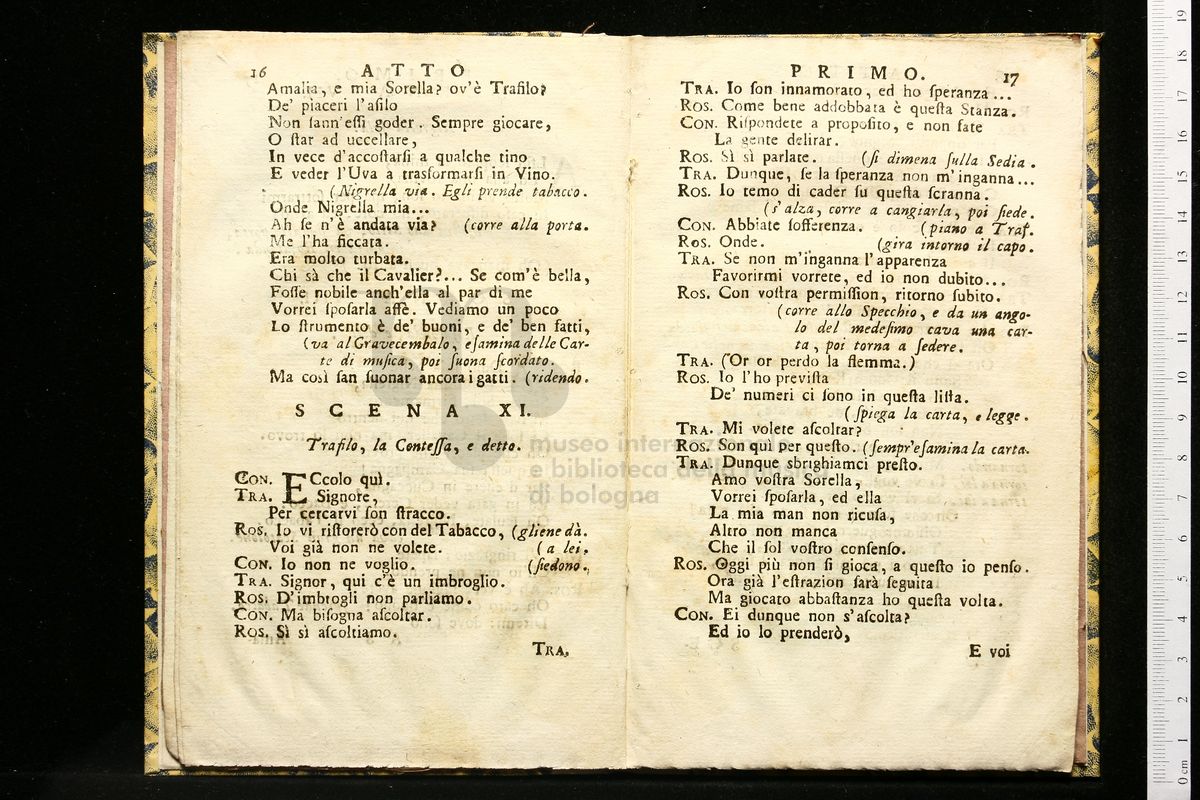 16 ATTO
Amalia, e mia Sorella? ov'è Trafilo?
De' piaceri l'asilo
Non ſann'eſſi goder. Sempre giocare,
O ſtar ad uccellare,
In vece d'accoſtarſi a qualche tino
E veder l'Uva a trasformarſi in Vino.
(Nigrella via. Egli prende tabacco.
Onde Nigrella mia...
Ah ſe n'è andata via? (corre alla porta.
Me l'ha ficcata.
Era molto turbata.
Chi sà che il Cavalier?... Se com'è bella,
Foſſe nobile anch'ella al par di me
Vorrei ſpoſarla affè. Vediamo un poco
Lo ſtrumento è de' buoni, e de' ben fatti,
(va al Gravecembalo, eſamina delle Car-
te di muſica, poi ſuona ſcordato.
Ma così ſan ſuonar ancora i gatti. (ridendo.
SCENA XI.
Trafilo, la Conteſſa, e detto.
CON. ECcolo quì.
TRA. Signore,
Per cercarvi ſon ſtracco.
ROS. Io vi riſtorerò con del Tabacco, (gliene dà.
Voi già non ne volete. (a lei.
CON. Io non ne voglio. (ſiedono.
TRA. Signor, qui c'è un imbroglio.
ROS. D'imbrogli non parliamo.
CON. Ma biſogna aſcoltar.
ROS. Sì sì aſcoltiamo.
TRA.
PRIMO. 17
TRA. Io ſon innamorato, ed ho ſperanza...
ROS. Come bene addobbata è queſta Stanza.
CON. Riſpondete a propoſito, e non fate
La gente delirar.
ROS. Sì sì parlate. (ſi dimena ſulla Sedia.
TRA. Dunque, ſe la ſperanza non m'inganna...
ROS. Io temo di cader ſu queſta ſcranna.
(s'alza, corre a cangiarla, poi ſiede.
CON. Abbiate ſofferenza. (piano a Traf.
ROS. Onde. (gira intorno il capo.
TRA. Se non m'inganna l'apparenza
Favorirmi vorrete, ed io non dubito...
ROS. Con voſtra permiſſion, ritorno ſubito.
(corre allo Specchio, e da un ango-
lo del medeſimo cava una car-
ta, poi torna a ſedere.
TRA. (Or or perdo la flemma.)
ROS. Io l'ho previſta
De' numeri ci ſono in queſta liſta.
(ſpiega la carta, e legge.
TRA. Mi volete aſcoltar?
ROS. Son quì per queſto. (ſempr'eſamina la carta.
TRA. Dunque sbrighiamci preſto.
Amo voſtra Sorella,
Vorrei ſpoſarla, ed ella
La mia man non ricuſa,
Altro non manca
Che il ſol voſtro conſenſo.
ROS. Oggi più non ſi gioca, a queſto io penſo.
Ora già l'eſtrazion ſarà ſeguita
Ma giocato abbaſtanza ho queſta volta.
CON. Ei dunque non s'aſcolta?
Ed io lo prenderò,
E voi
museo internazionale
e biblioteca della musica
di bologna
0 cm 1 2 3 4 5 6 7 8 9 10 11 12 13 14 15 16 17 18 19